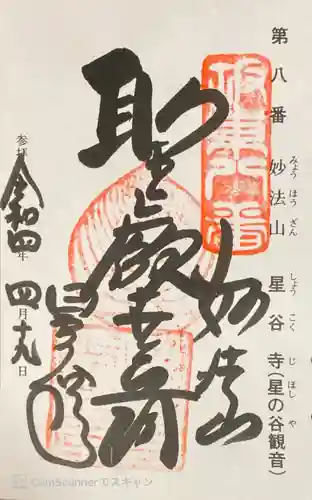 第八番 妙法山 星谷寺(星の谷観音)
みょう ほう ざん しょう こく じ ほし や
坂東八番
妙法山
聖観世音
星谷寺
参拝 令和四年 四月十九日
CamScannerでスキャン